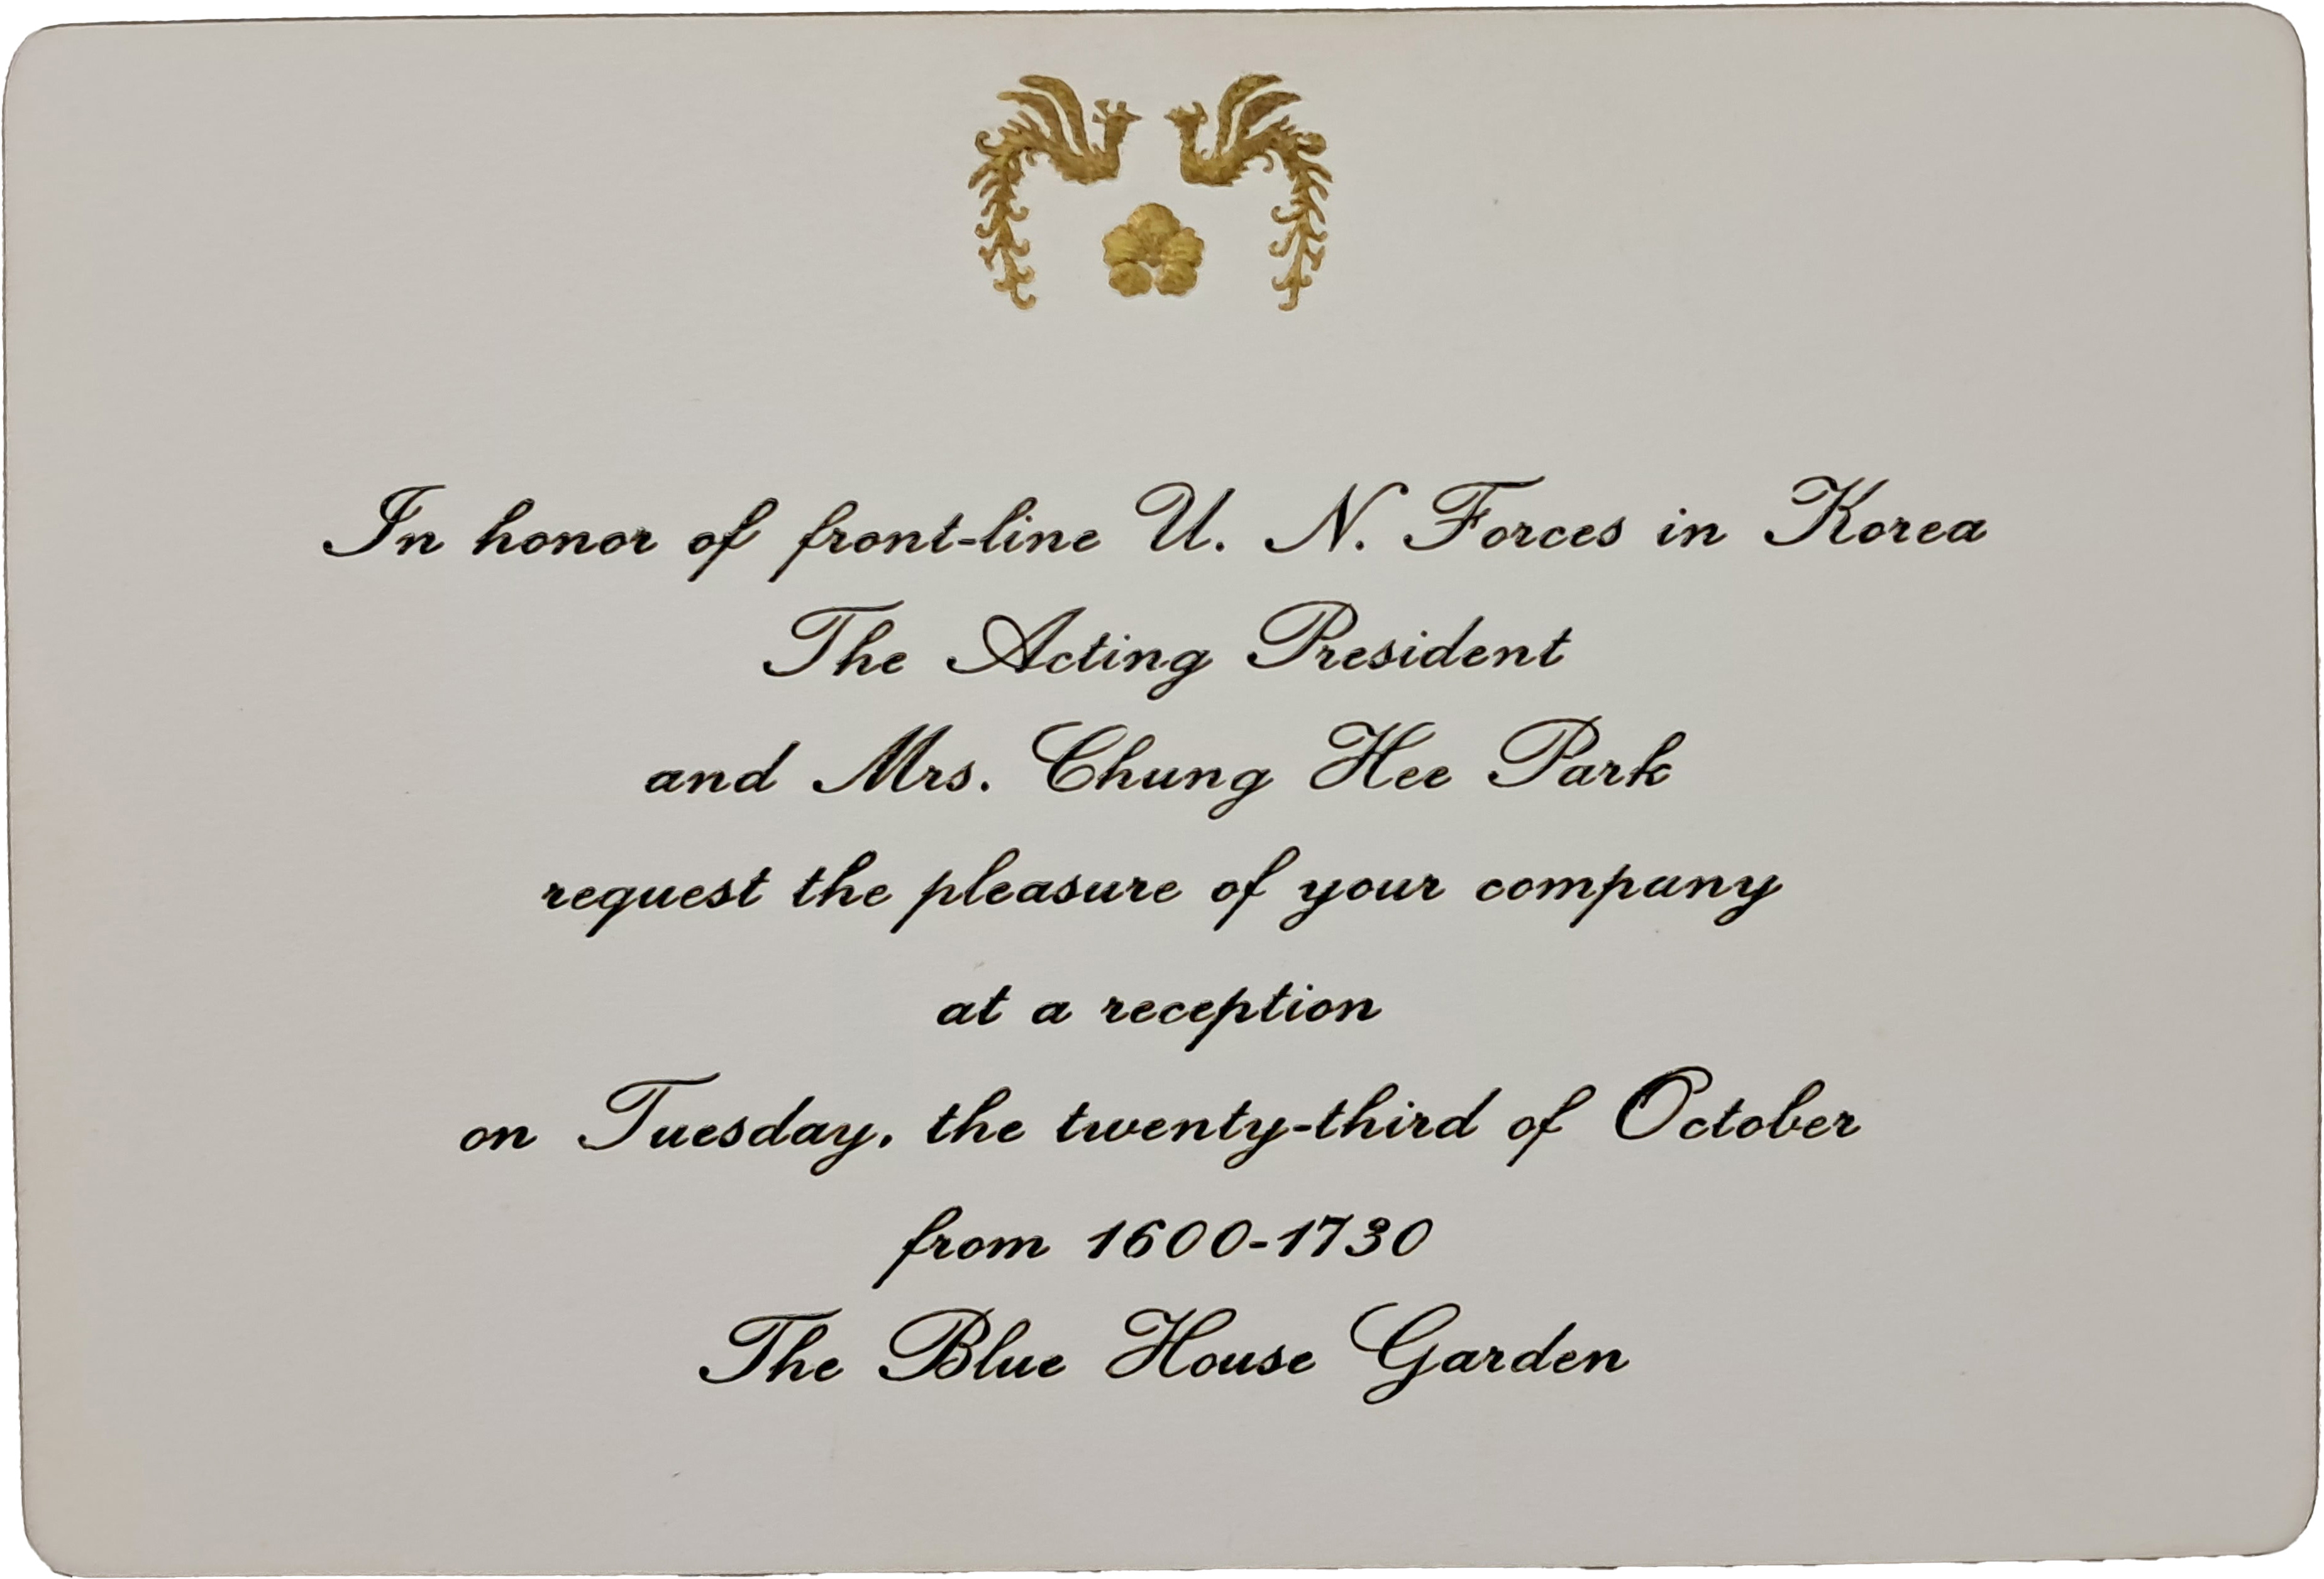 In honor of front-line U. N. Forces in Korea
The Acting President
and Mrs. Chung Hee Park
request the pleasure of your company
at a reception
on Tuesday, the twenty-third of October
from 1600-1730
The Blue House Garden